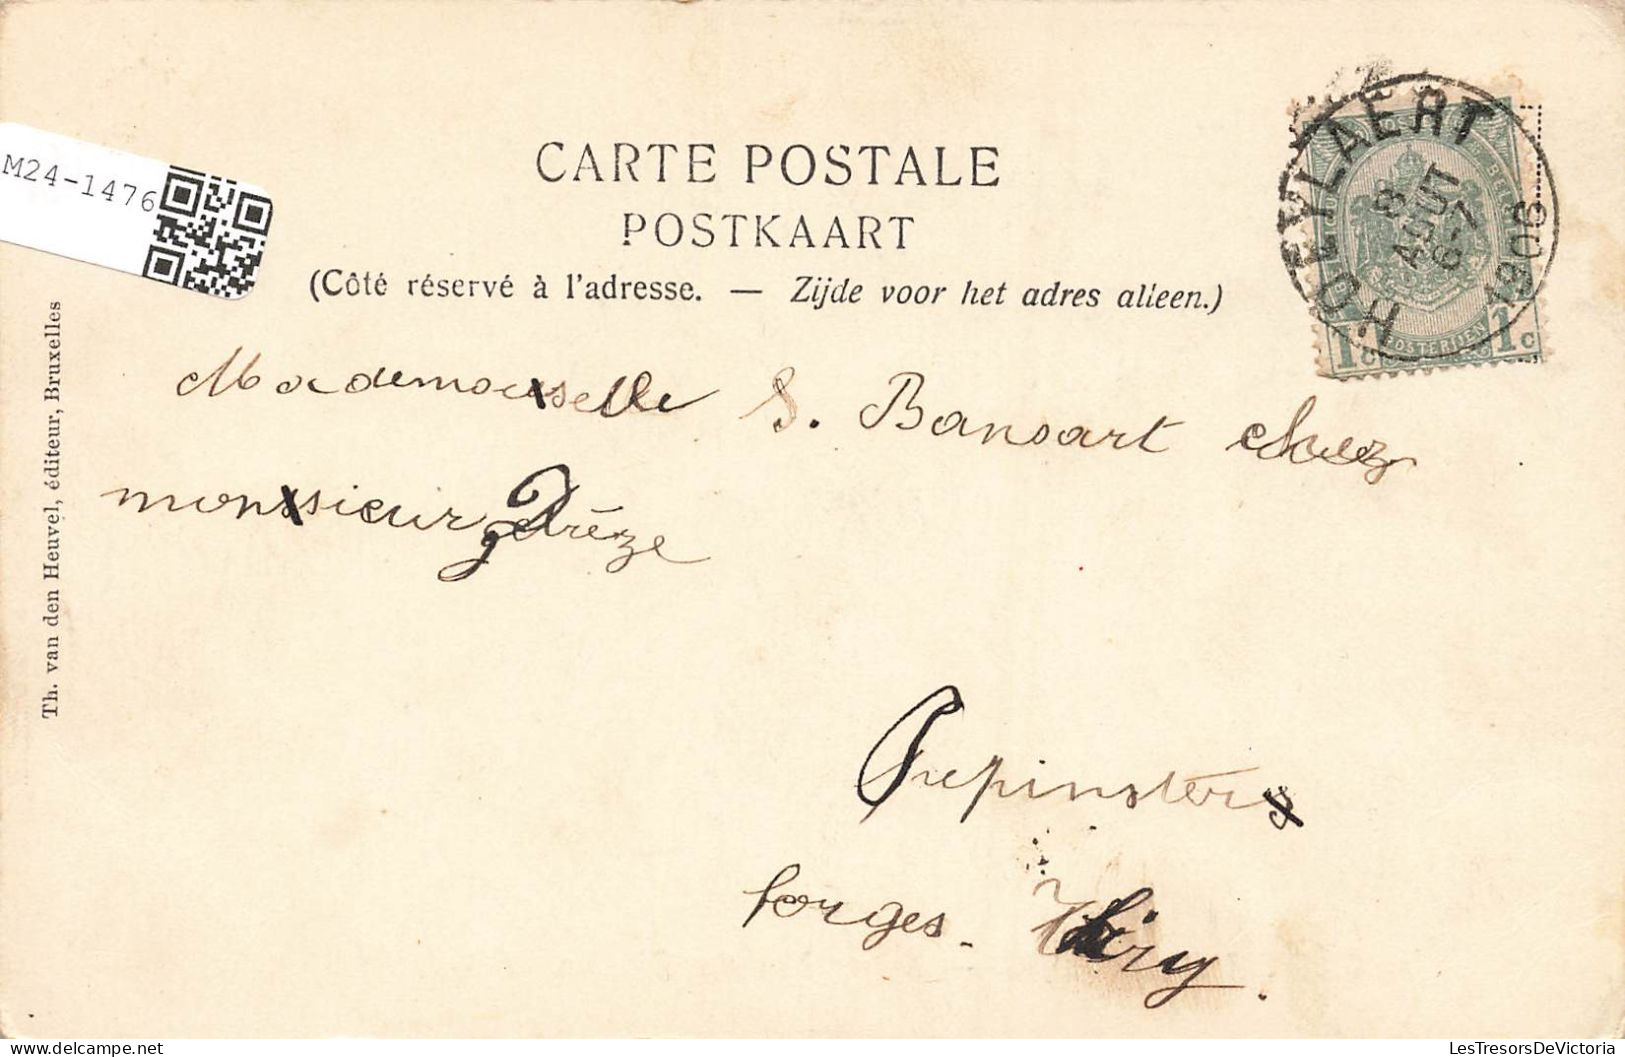 M24-1476
CARTE POSTALE
POSTKAART
(Côté réservé à l'adresse. — Zijde voor het adres alleen.)
HOEYLAERT
8
AOUT
6-7
1908
1c 1c
Th. van den Heuvel, éditeur, Bruxelles
Mademoiselle S. Bansart chez
monsieur Drèze
Pepinster
forges - Thiry.
LesTresorsDeVictoria